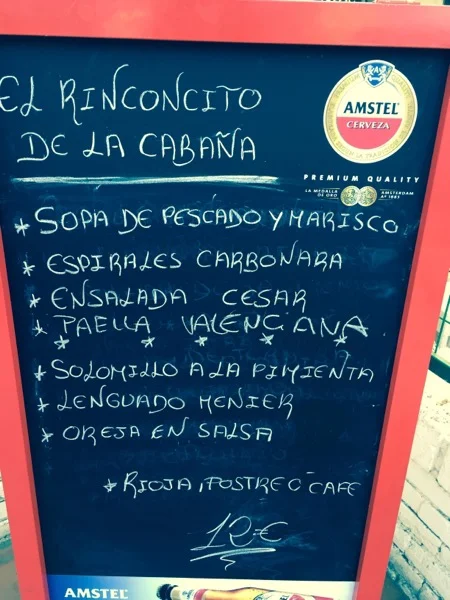 EL RINCONCITO
DE LA CABAÑA
AMSTEL
CERVEZA
PREMIUM QUALITY
LA MEDALLA
DE ORO
AMSTERDAM
Aº 1883
* SOPA DE PESCADO Y MARISCO
* ESPIRALES CARBONARA
* ENSALADA CESAR
* PAELLA VALENCIANA
* * * * *
* SOLOMILLO A LA PIMIENTA
* LENGUADO MENIER
* OREJA EN SALSA
* RIOJA, POSTRE O CAFE
12€
AMSTEL